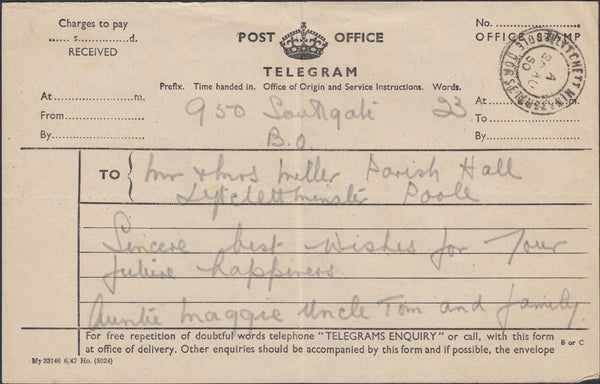 Charges to pay
........ s..............d.
RECEIVED
POST OFFICE
TELEGRAM
No.
OFFICE STAMP
LYTCHETT MINSTER
POOLE DORSET
A
AU
50
Prefix. Time handed in. Office of Origin and Service Instructions. Words.
At........................m.
From........................
By........................
950 Southgate 23
B.O.
At........................m.
To........................
By........................
TO Mr & Mrs Miller Parish Hall
Lytchettminster Poole
Sincere best wishes for Your
future happiness
Auntie Maggie Uncle Tom and family.
For free repetition of doubtful words telephone "TELEGRAMS ENQUIRY" or call, with this form
at office of delivery. Other enquiries should be accompanied by this form and if possible, the envelope
B or C
My 53146 6/47 Ho. (5024)